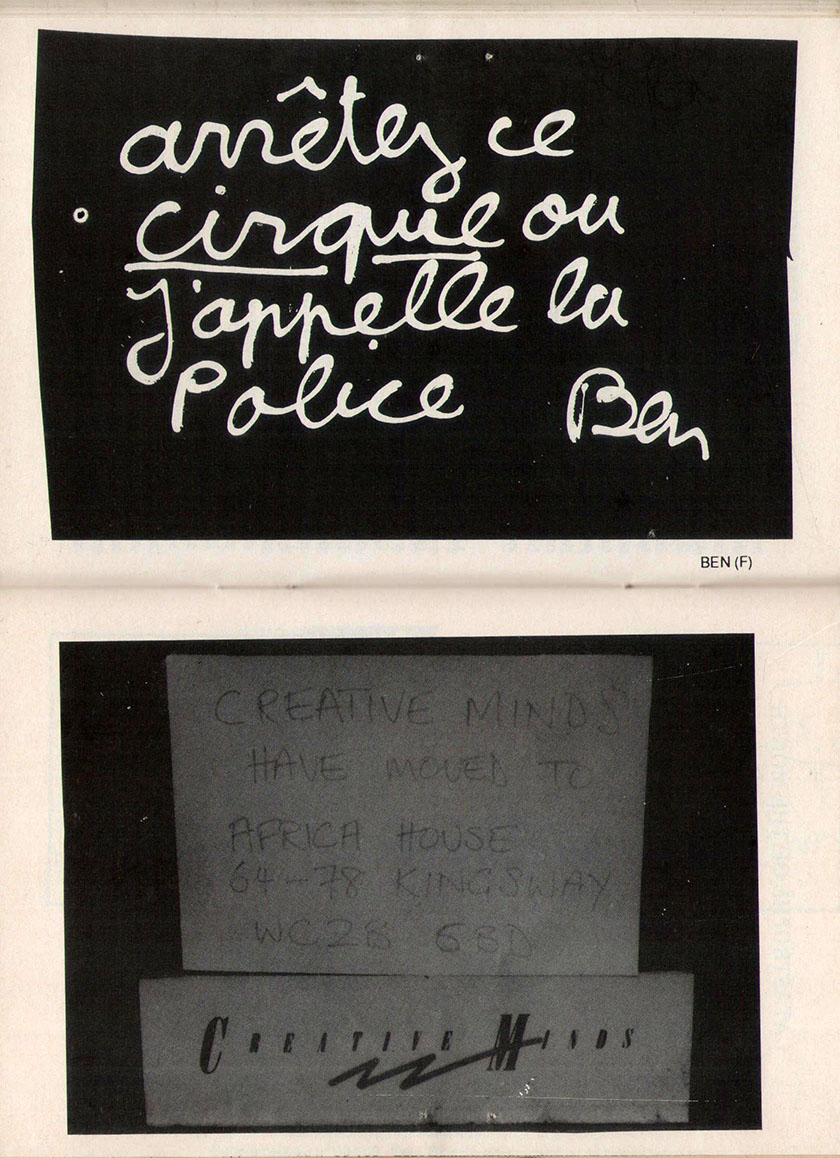 arrêtez ce
cirque ou
j'appelle la
Police Ben
BEN (F)
CREATIVE MINDS
HAVE MOVED TO
AFRICA HOUSE
64-78 KINGSWAY
WC2B 6BD
CREATIVE MINDS